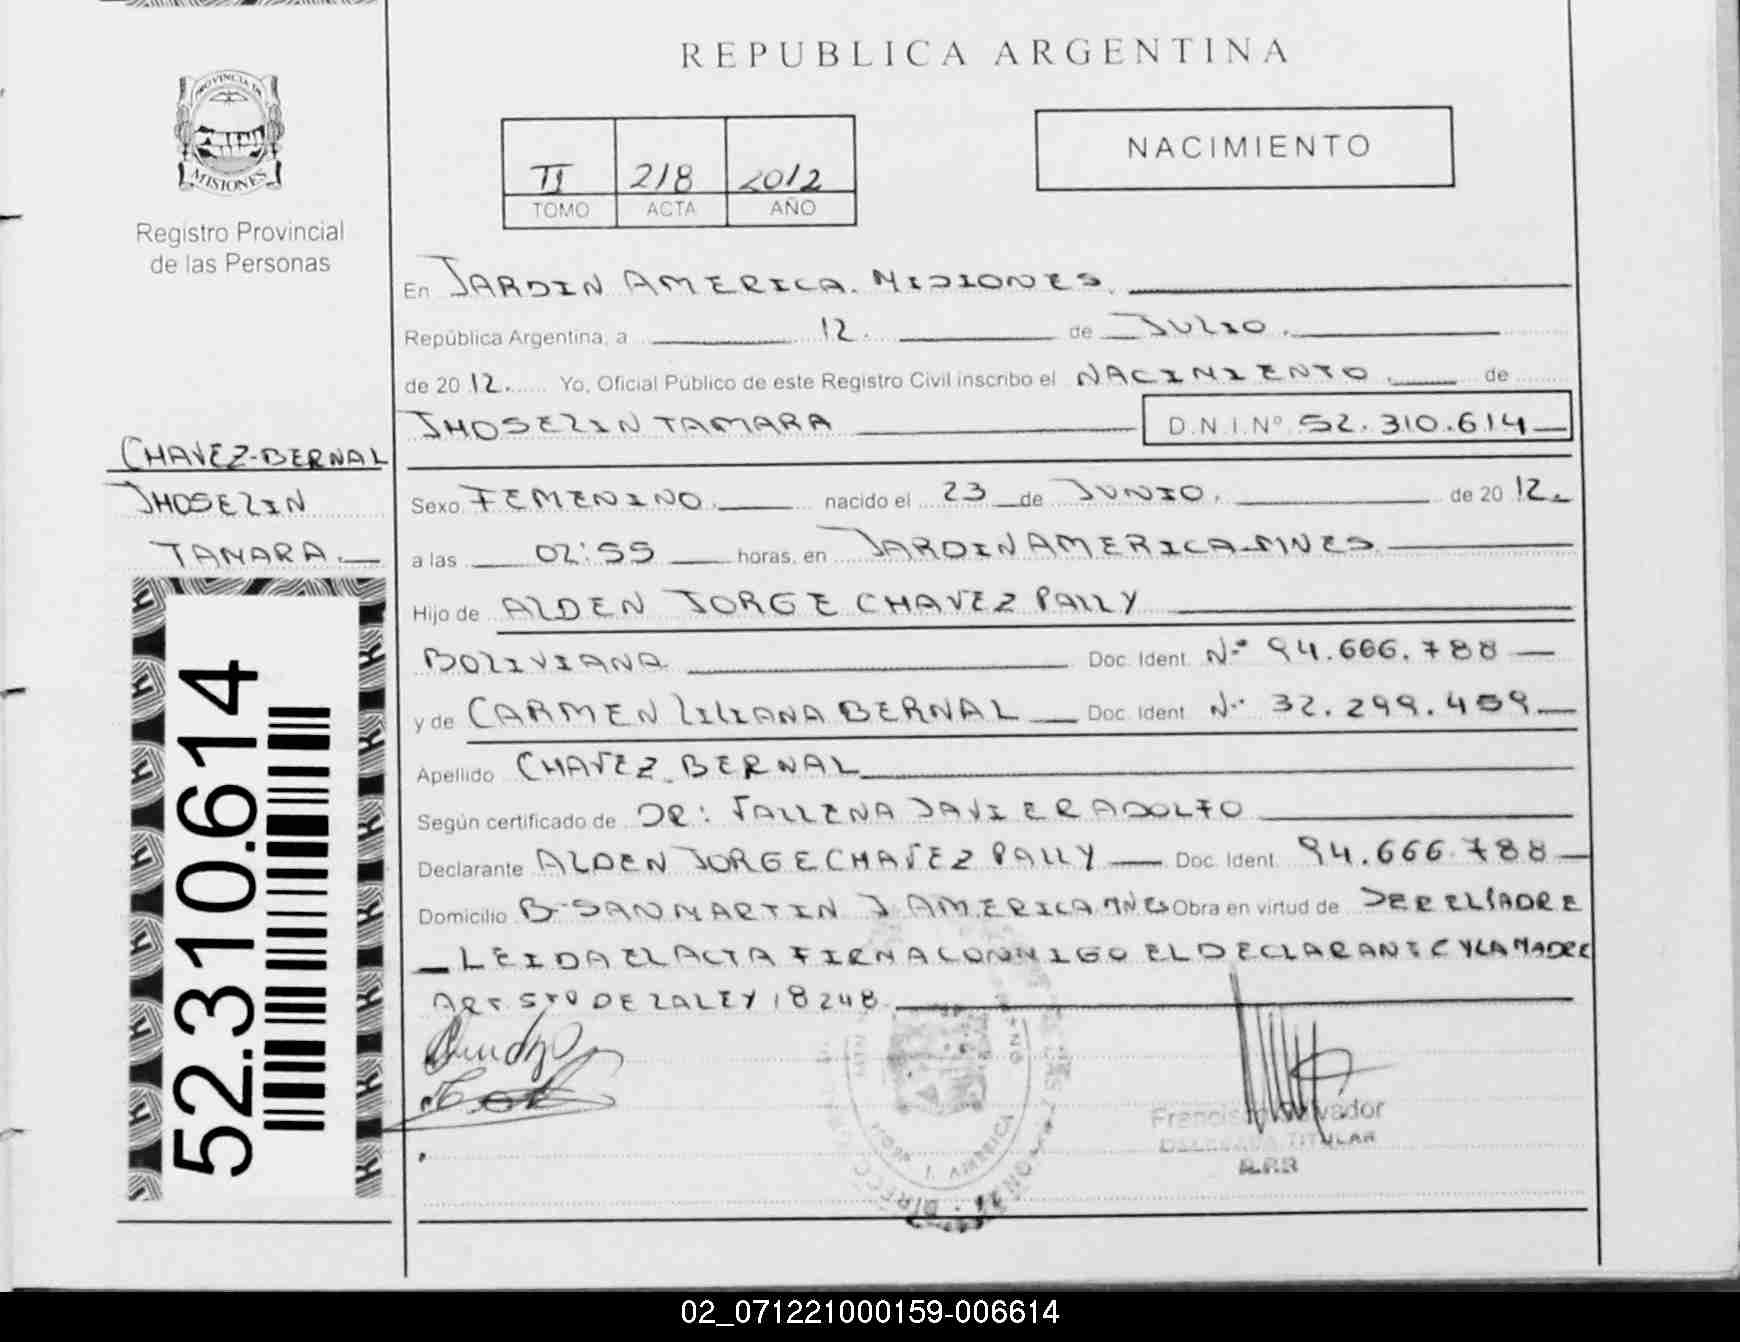 REPUBLICA ARGENTINA
PROVINCIA DE
MISIONES
Registro Provincial
de las Personas
NACIMIENTO
II 218 2012
TOMO ACTA AÑO
En JARDIN AMERICA. MISIONES.
República Argentina, a 12. de JULIO.
de 2012. Yo, Oficial Público de este Registro Civil inscribo el NACIMIENTO. de
JHOSELIN TAMARA D.N.I.Nº 52.310.614
CHAVEZ-BERNAL
JHOSELIN
TAMARA.
52.310.614
Sexo FEMENINO. nacido el 23 de JUNIO. de 2012.
a las 02:55 horas, en JARDIN AMERICA-MNES.
Hijo de ALDEN JORGE CHAVEZ PALLY
BOLIVIANA Doc. Ident. Nº 94.666.788
y de CARMEN LILIANA BERNAL Doc. Ident. Nº 32.299.459
Apellido CHAVEZ BERNAL
Según certificado de DR: JAVIER ADOLFO
Declarante ALDEN JORGE CHAVEZ PALLY Doc. Ident. 94.666.788
Domicilio Bº SAN MARTIN J AMERICA MNES Obra en virtud de SER EL PADRE
LEIDA EL ACTA FIRMA CONMIGO EL DECLARANTE Y LA MADRE
ART. 5TO DE LA LEY 18248.
J. AMERICA
Francisco Salvador
TITULAR
02_071221000159-006614